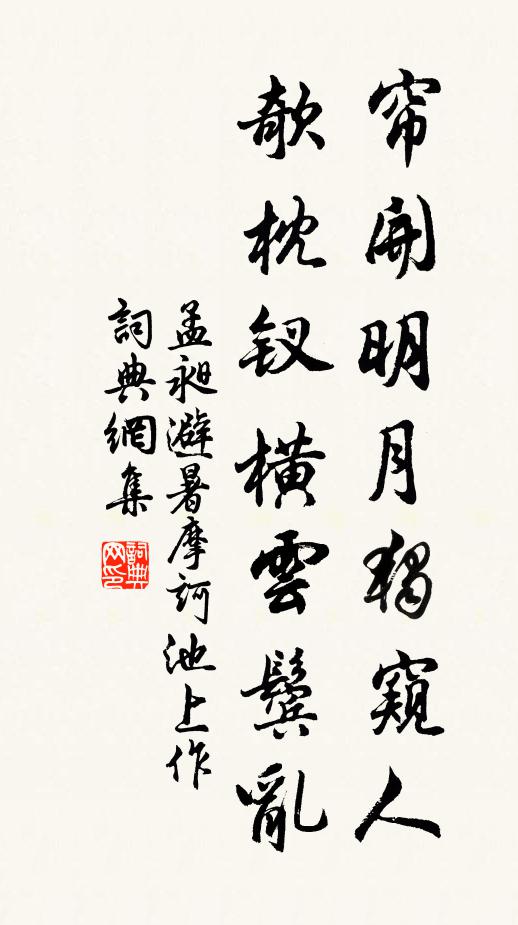 帘開明月獨窺人
欹枕釵橫雲鬢亂
孟昶避暑摩訶池上作
詞典網集
詞典网印